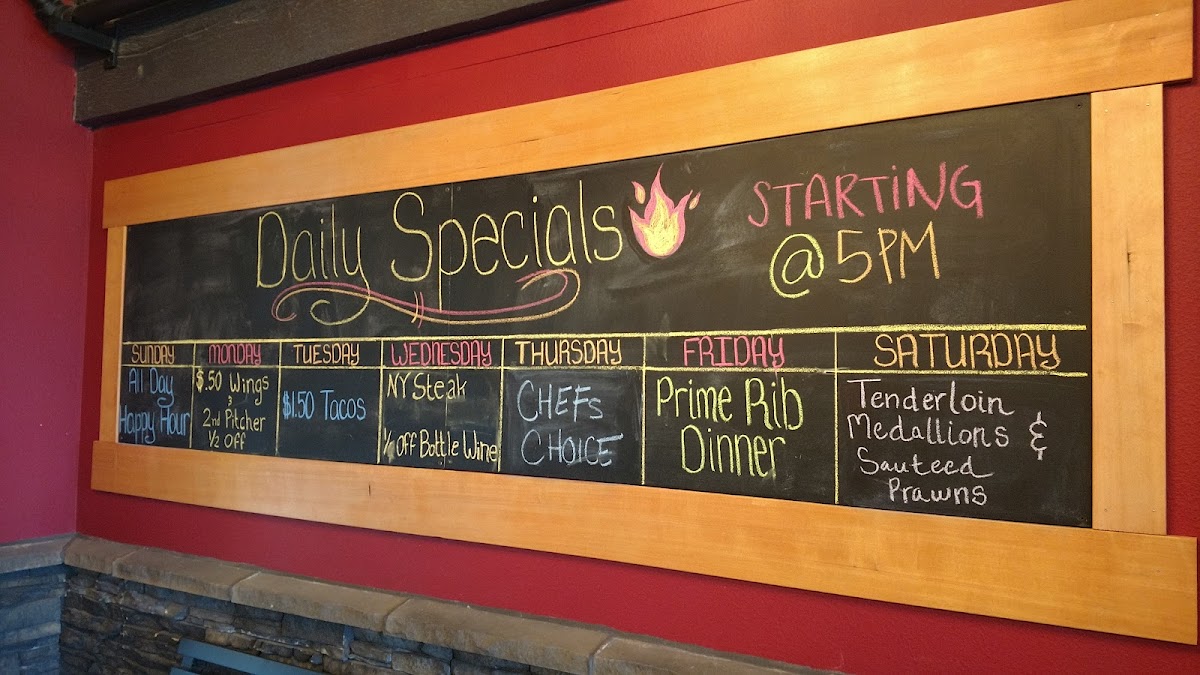 Daily Specials
STARTING
@ 5PM
SUNDAY
All Day
Happy Hour
MONDAY
$.50 Wings
&
2nd Pitcher
1/2 Off
TUESDAY
$1.50 Tacos
WEDNESDAY
NY Steak
1/2 Off Bottle Wine
THURSDAY
CHEFs
CHOICE
FRIDAY
Prime Rib
Dinner
SATURDAY
Tenderloin
Medallions &
Sauteed
Prawns